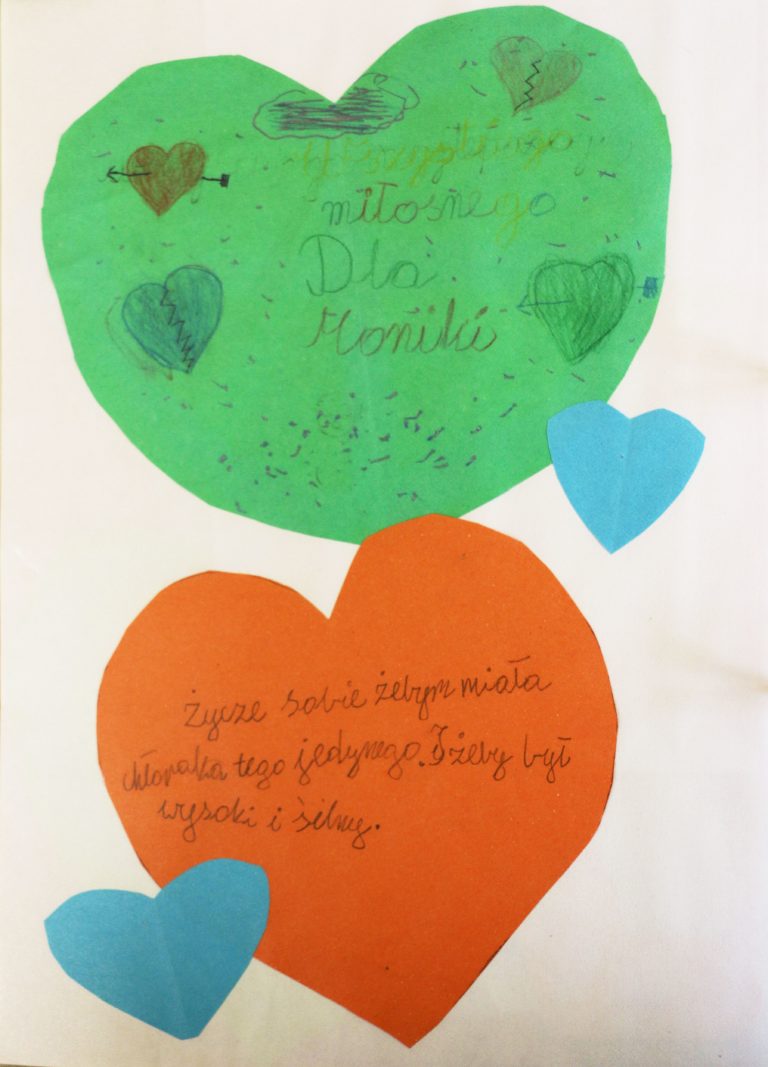 Wszystkiego
miłosnego
Dla
Moniki
życze sobie żebym miała
chłopaka tego jedynego. I żeby był
wysoki i silny.